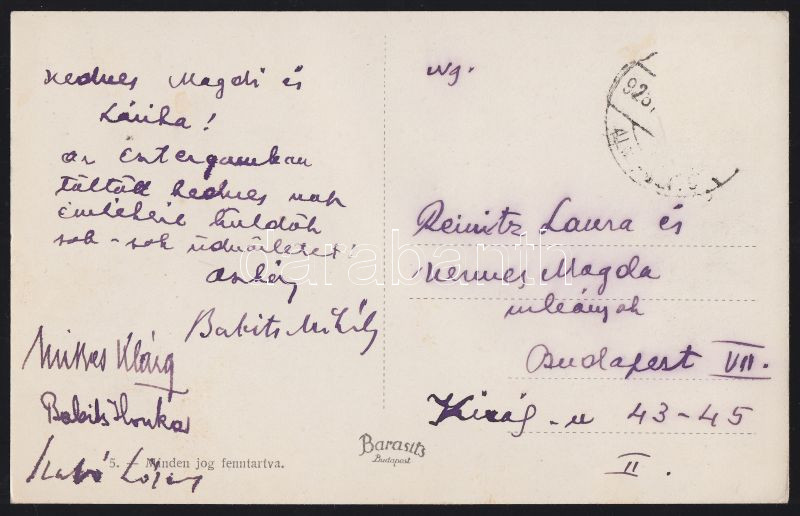 Kedves Magdi és
Lánka!
az Esztergomban
töltött kedves nap
emlékéül küldök
sok-sok üdvözletet!
Babits Mihály
Mikes Klára
Babits Ilonka
Szabó Lőrinc
5. — Minden jog fenntartva.
Barasits
Budapest
Ng.
925
Reinitz Laura és
Nemes Magda
urleányok
Budapest VII.
Király-u 43-45
II.
darabanth